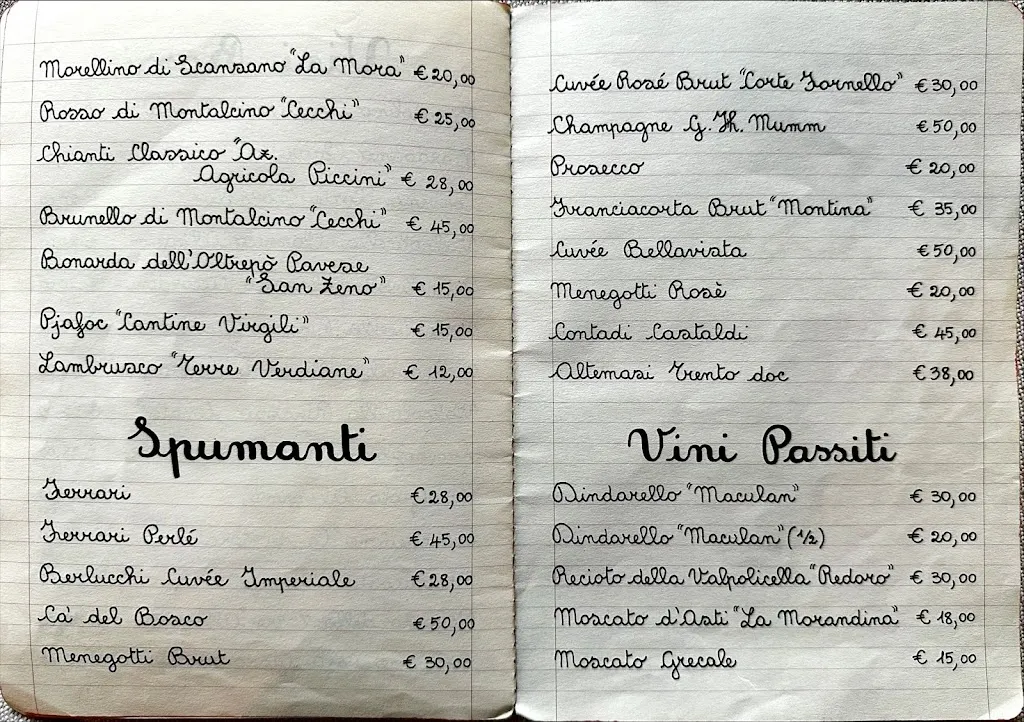 Morellino di Scansano "La Mora" € 20,00
Rosso di Montalcino "Cecchi" € 25,00
Chianti Classico "Az.
Agricola Piccini" € 28,00
Brunello di Montalcino "Cecchi" € 45,00
Bonarda dell'Oltrepò Pavese
"San Zeno" € 15,00
Pjafoc "Cantine Virgili" € 15,00
Lambrusco "Terre Verdiane" € 12,00
Spumanti
Ferrari € 28,00
Ferrari Perlé € 45,00
Berlucchi Cuvée Imperiale € 28,00
Ca' del Bosco € 50,00
Menegotti Brut € 30,00
Cuvée Rosé Brut "Corte Fornello" € 30,00
Champagne G. H. Mumm € 50,00
Prosecco € 20,00
Franciacorta Brut "Montina" € 35,00
Cuvée Bellavista € 50,00
Menegotti Rosè € 20,00
Contadi Castaldi € 45,00
Altemasi Trento doc € 38,00
Vini Passiti
Dindarello "Maculan" € 30,00
Dindarello "Maculan" (1/2) € 20,00
Recioto della Valpolicella "Redoro" € 30,00
Moscato d'Asti "La Morandina" € 18,00
Moscato Grecale € 15,00